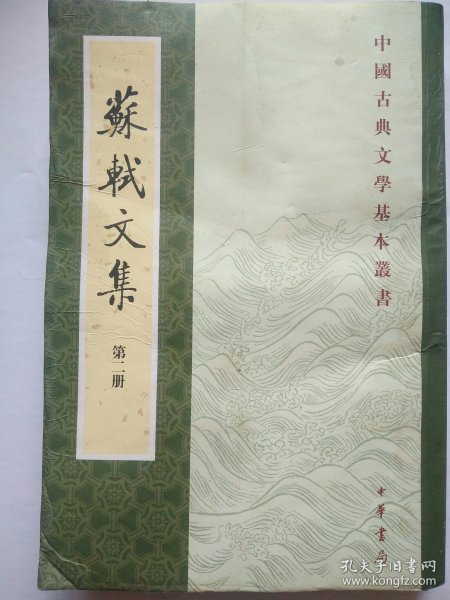 中國古典文學基本叢書
蘇軾文集
第二册
中華書局
孔夫子旧书网
www.kongfz.com